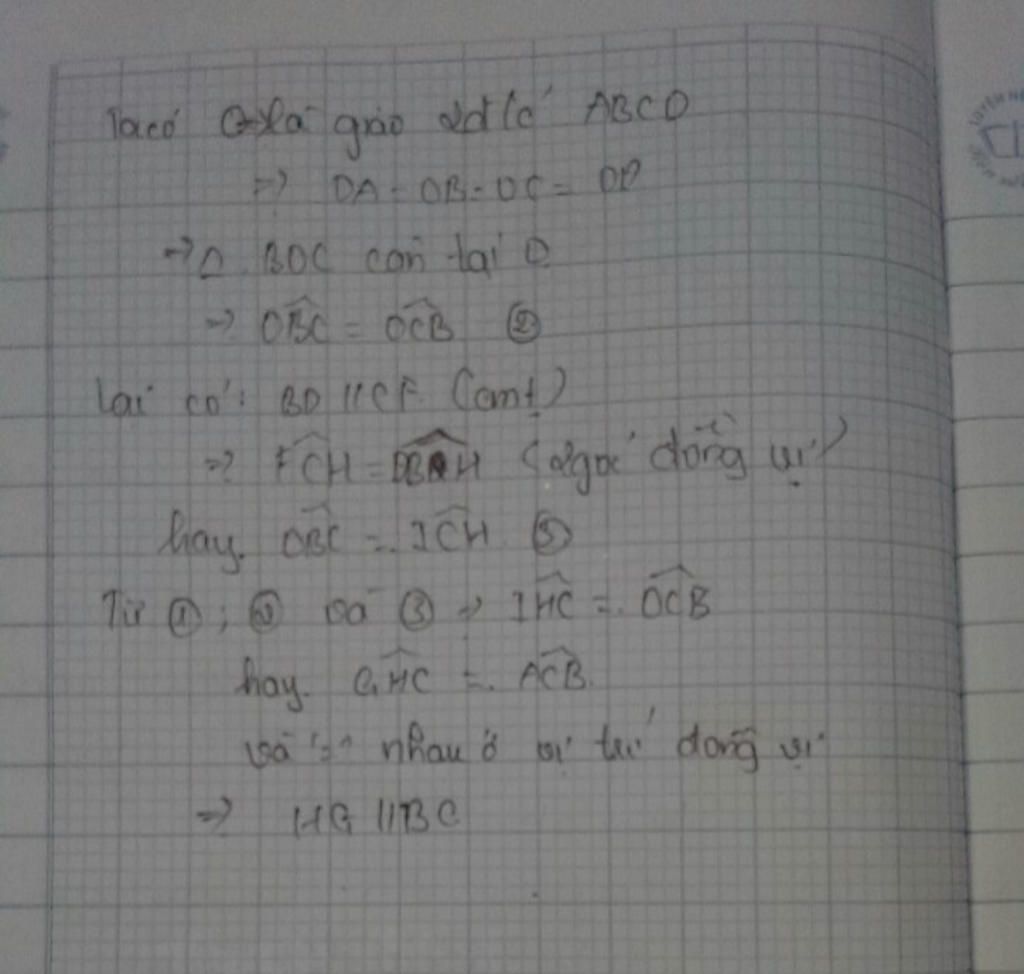 Ta có O là giao 2 đ/c ABCD
=> OA = OB = OC = OD
=> Δ BOC cân tại O
=> OBC = OCB ②
Lại có: BD // CF (cmt)
=> FCH = DBH (2 góc đồng vị)
hay OBC = ICH ③
Từ ①; ② và ③ => IHC = OCB
hay GHC = ACB.
và "=" nhau ở vị trí đồng vị
=> HG // BC